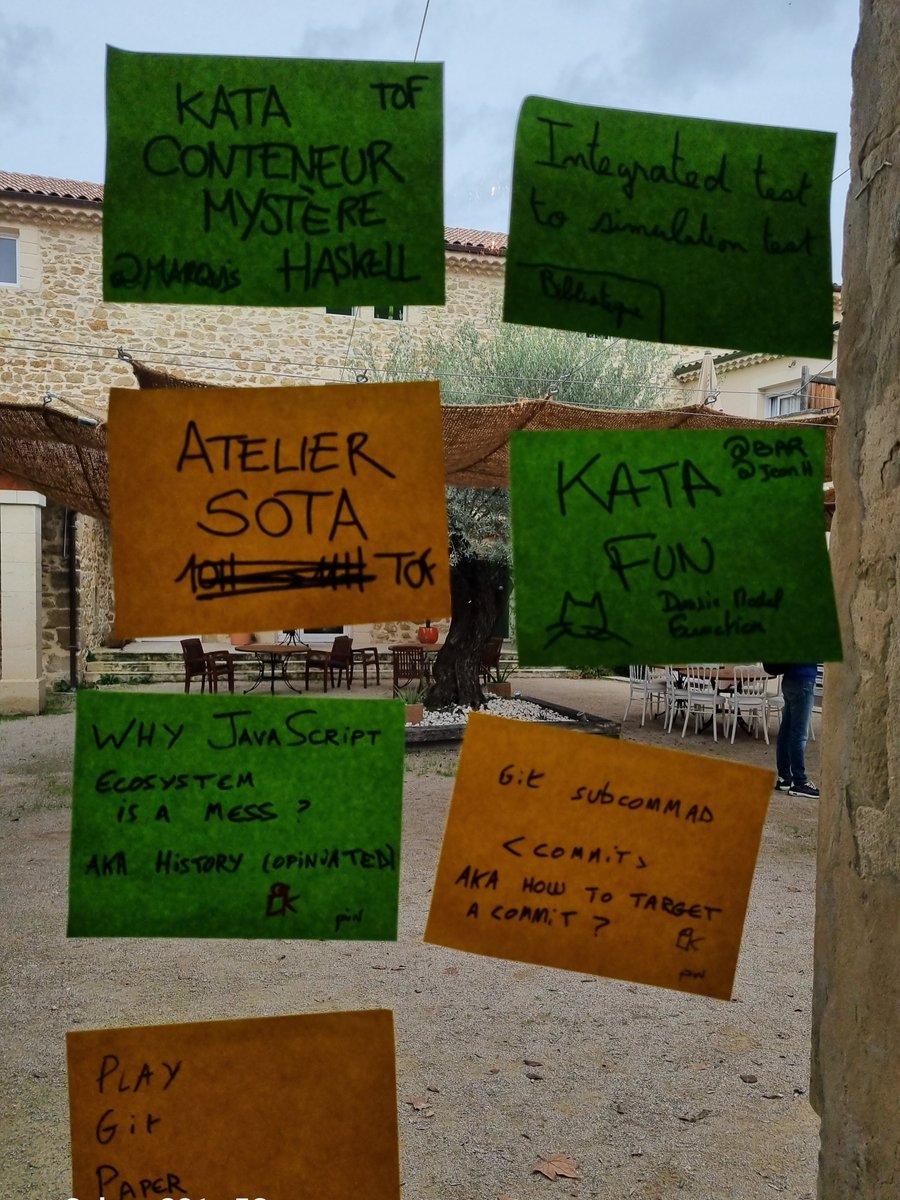 KATA TOF
CONTENEUR
MYSTÈRE
@MARQUIS HASKELL
Integrated test
to simulation test
Bibliothèque
ATELIER
SOTA
TOF
KATA @BAR
@Jean H
FUN
Domain Model
Function
WHY JAVASCRIPT
ECOSYSTEM
IS A MESS ?
AKA HISTORY (OPINUATED)
piw
Git SUBCOMMAD
<COMMIT>
AKA HOW TO TARGET
A COMMIT ?
piw
PLAY
Git
PAPER